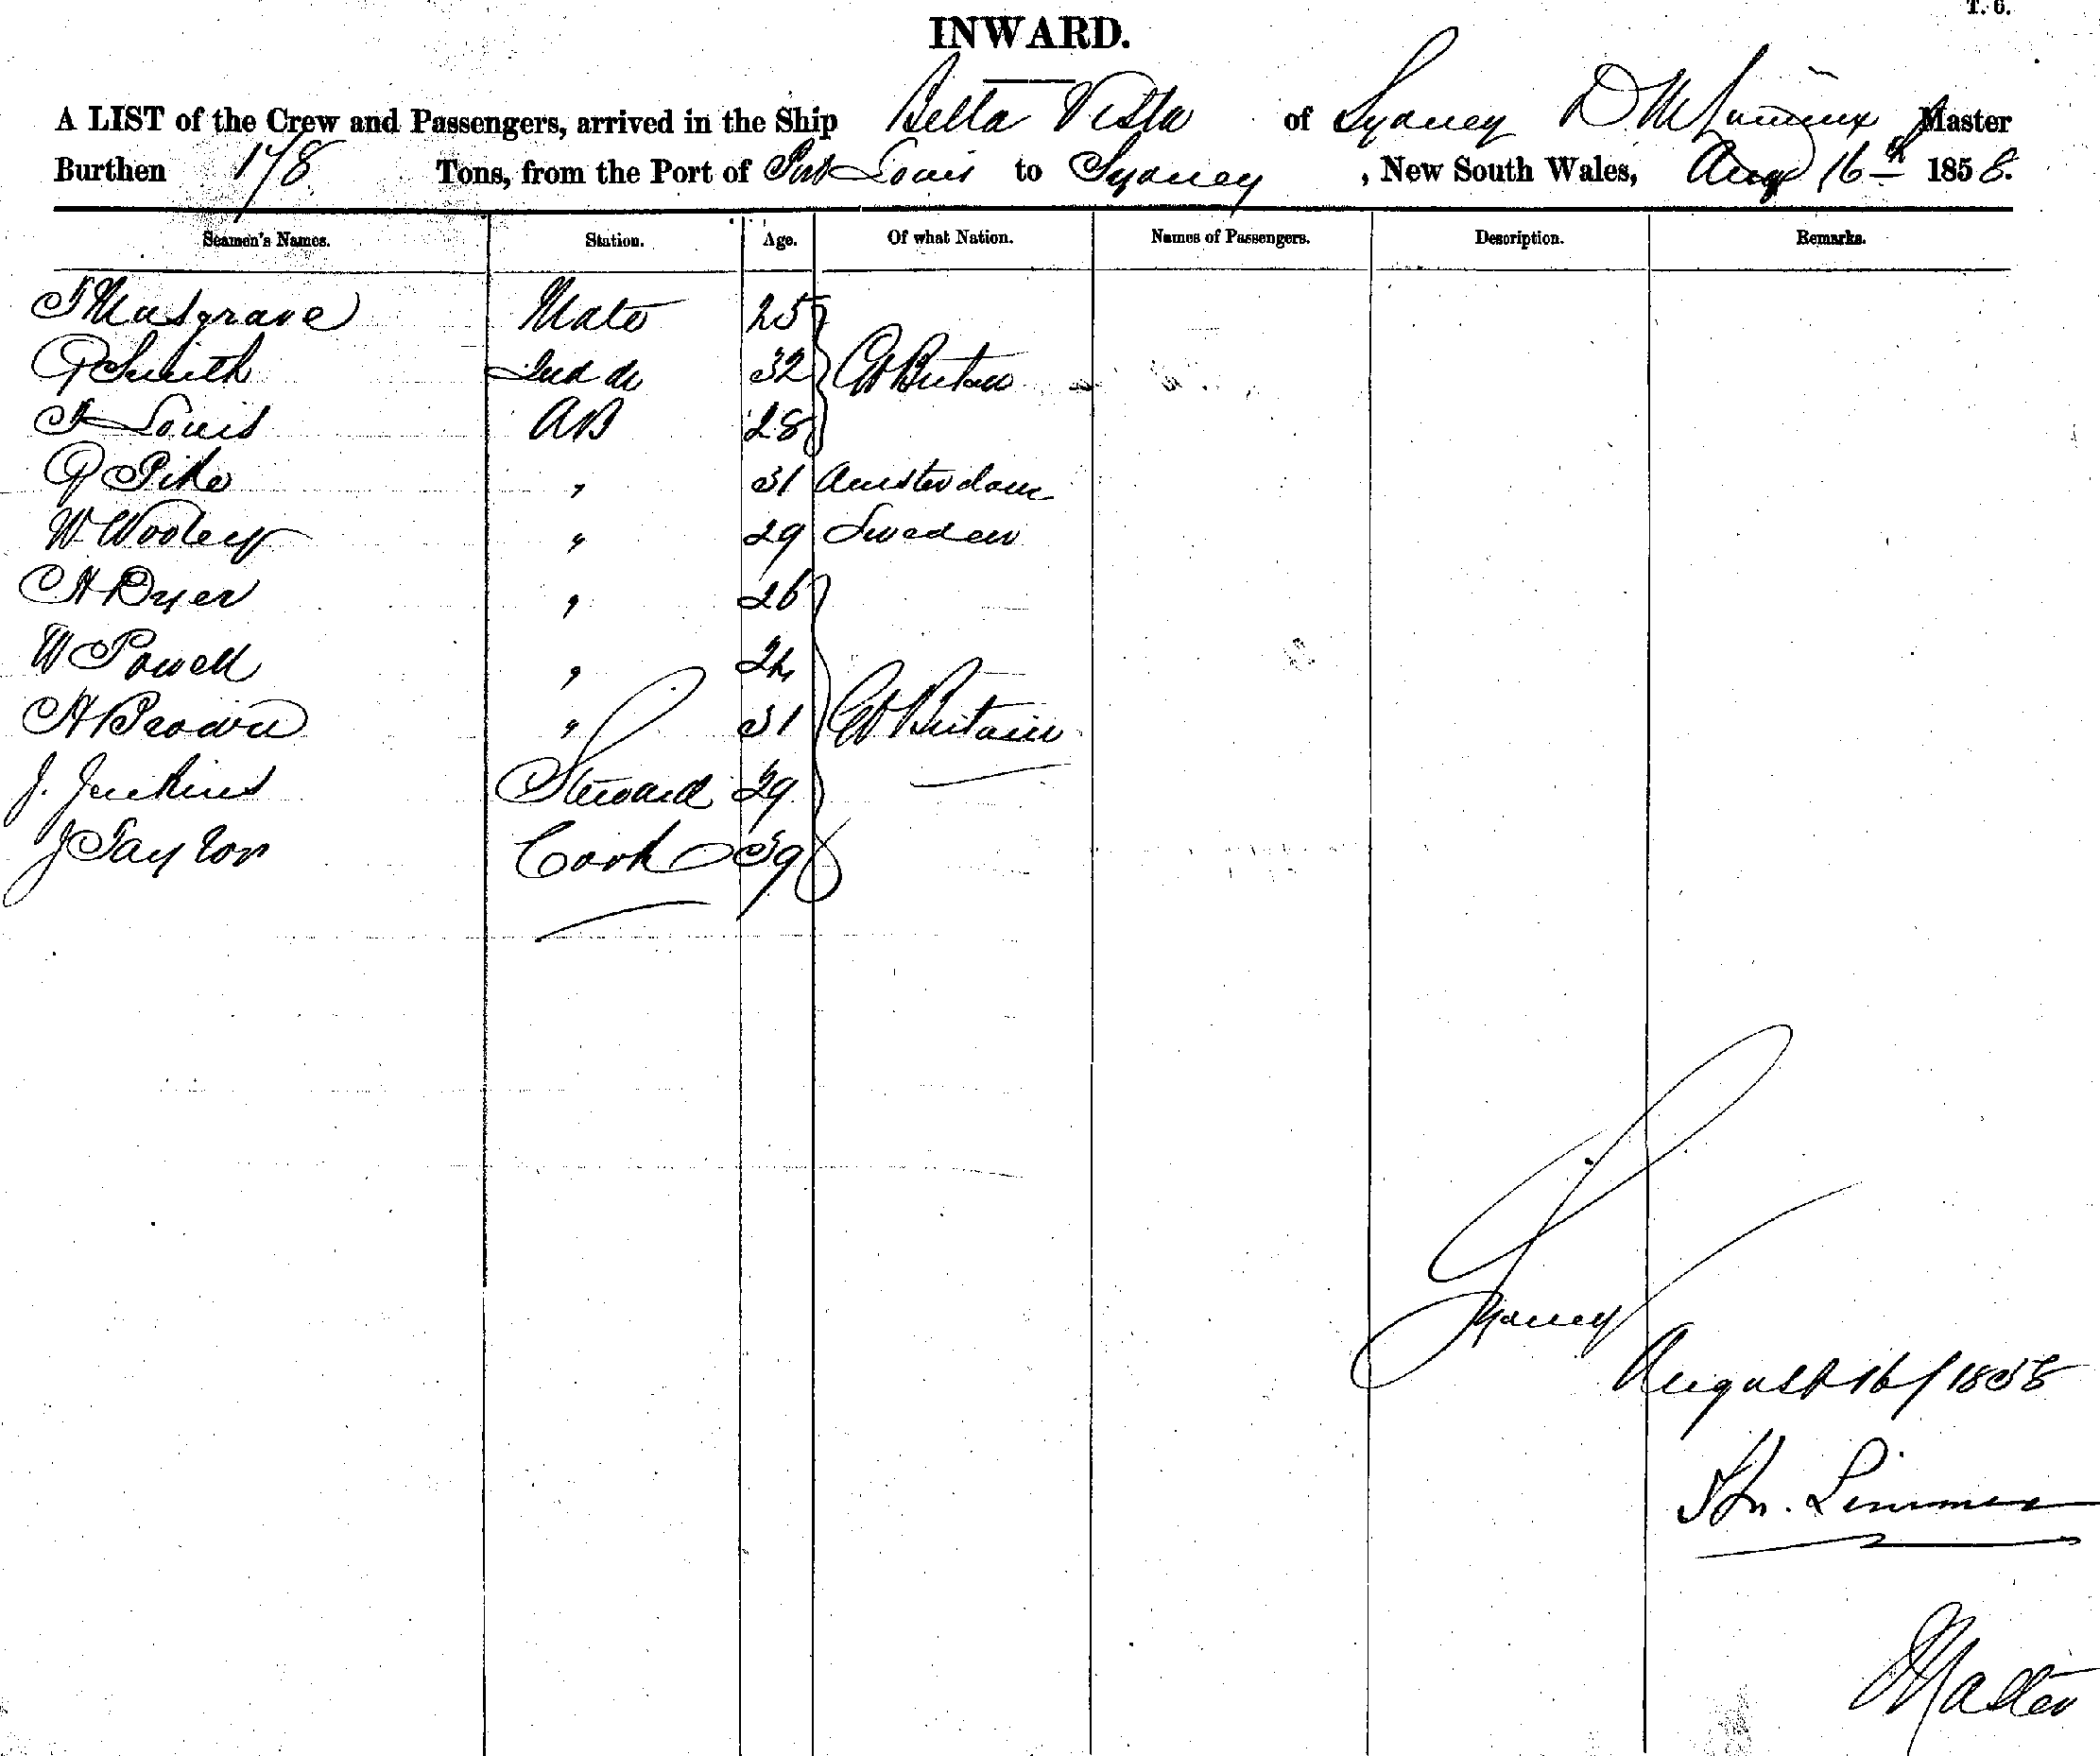 T. 6.
INWARD.
A LIST of the Crew and Passengers, arrived in the Ship Bella Vista of Sydney D Master
Burthen 178 Tons, from the Port of Port Louis to Sydney, New South Wales, Aug 16th 1858.
Seamen's Names. Station. Age. Of what Nation. Names of Passengers. Description. Remarks.
T Musgrave Mate 25
G Smith 2nd do 32 Gt Britain
Louis AB 28
G Pike " 31 Amsterdam
W Wooley " 29 Sweden
H Dyer " 26
W Powell " 24
H Brown " 31 Gt Britain
J. Jenkins Steward 29
J Taylor Cook 39
Sydney
August 16/1858
Master